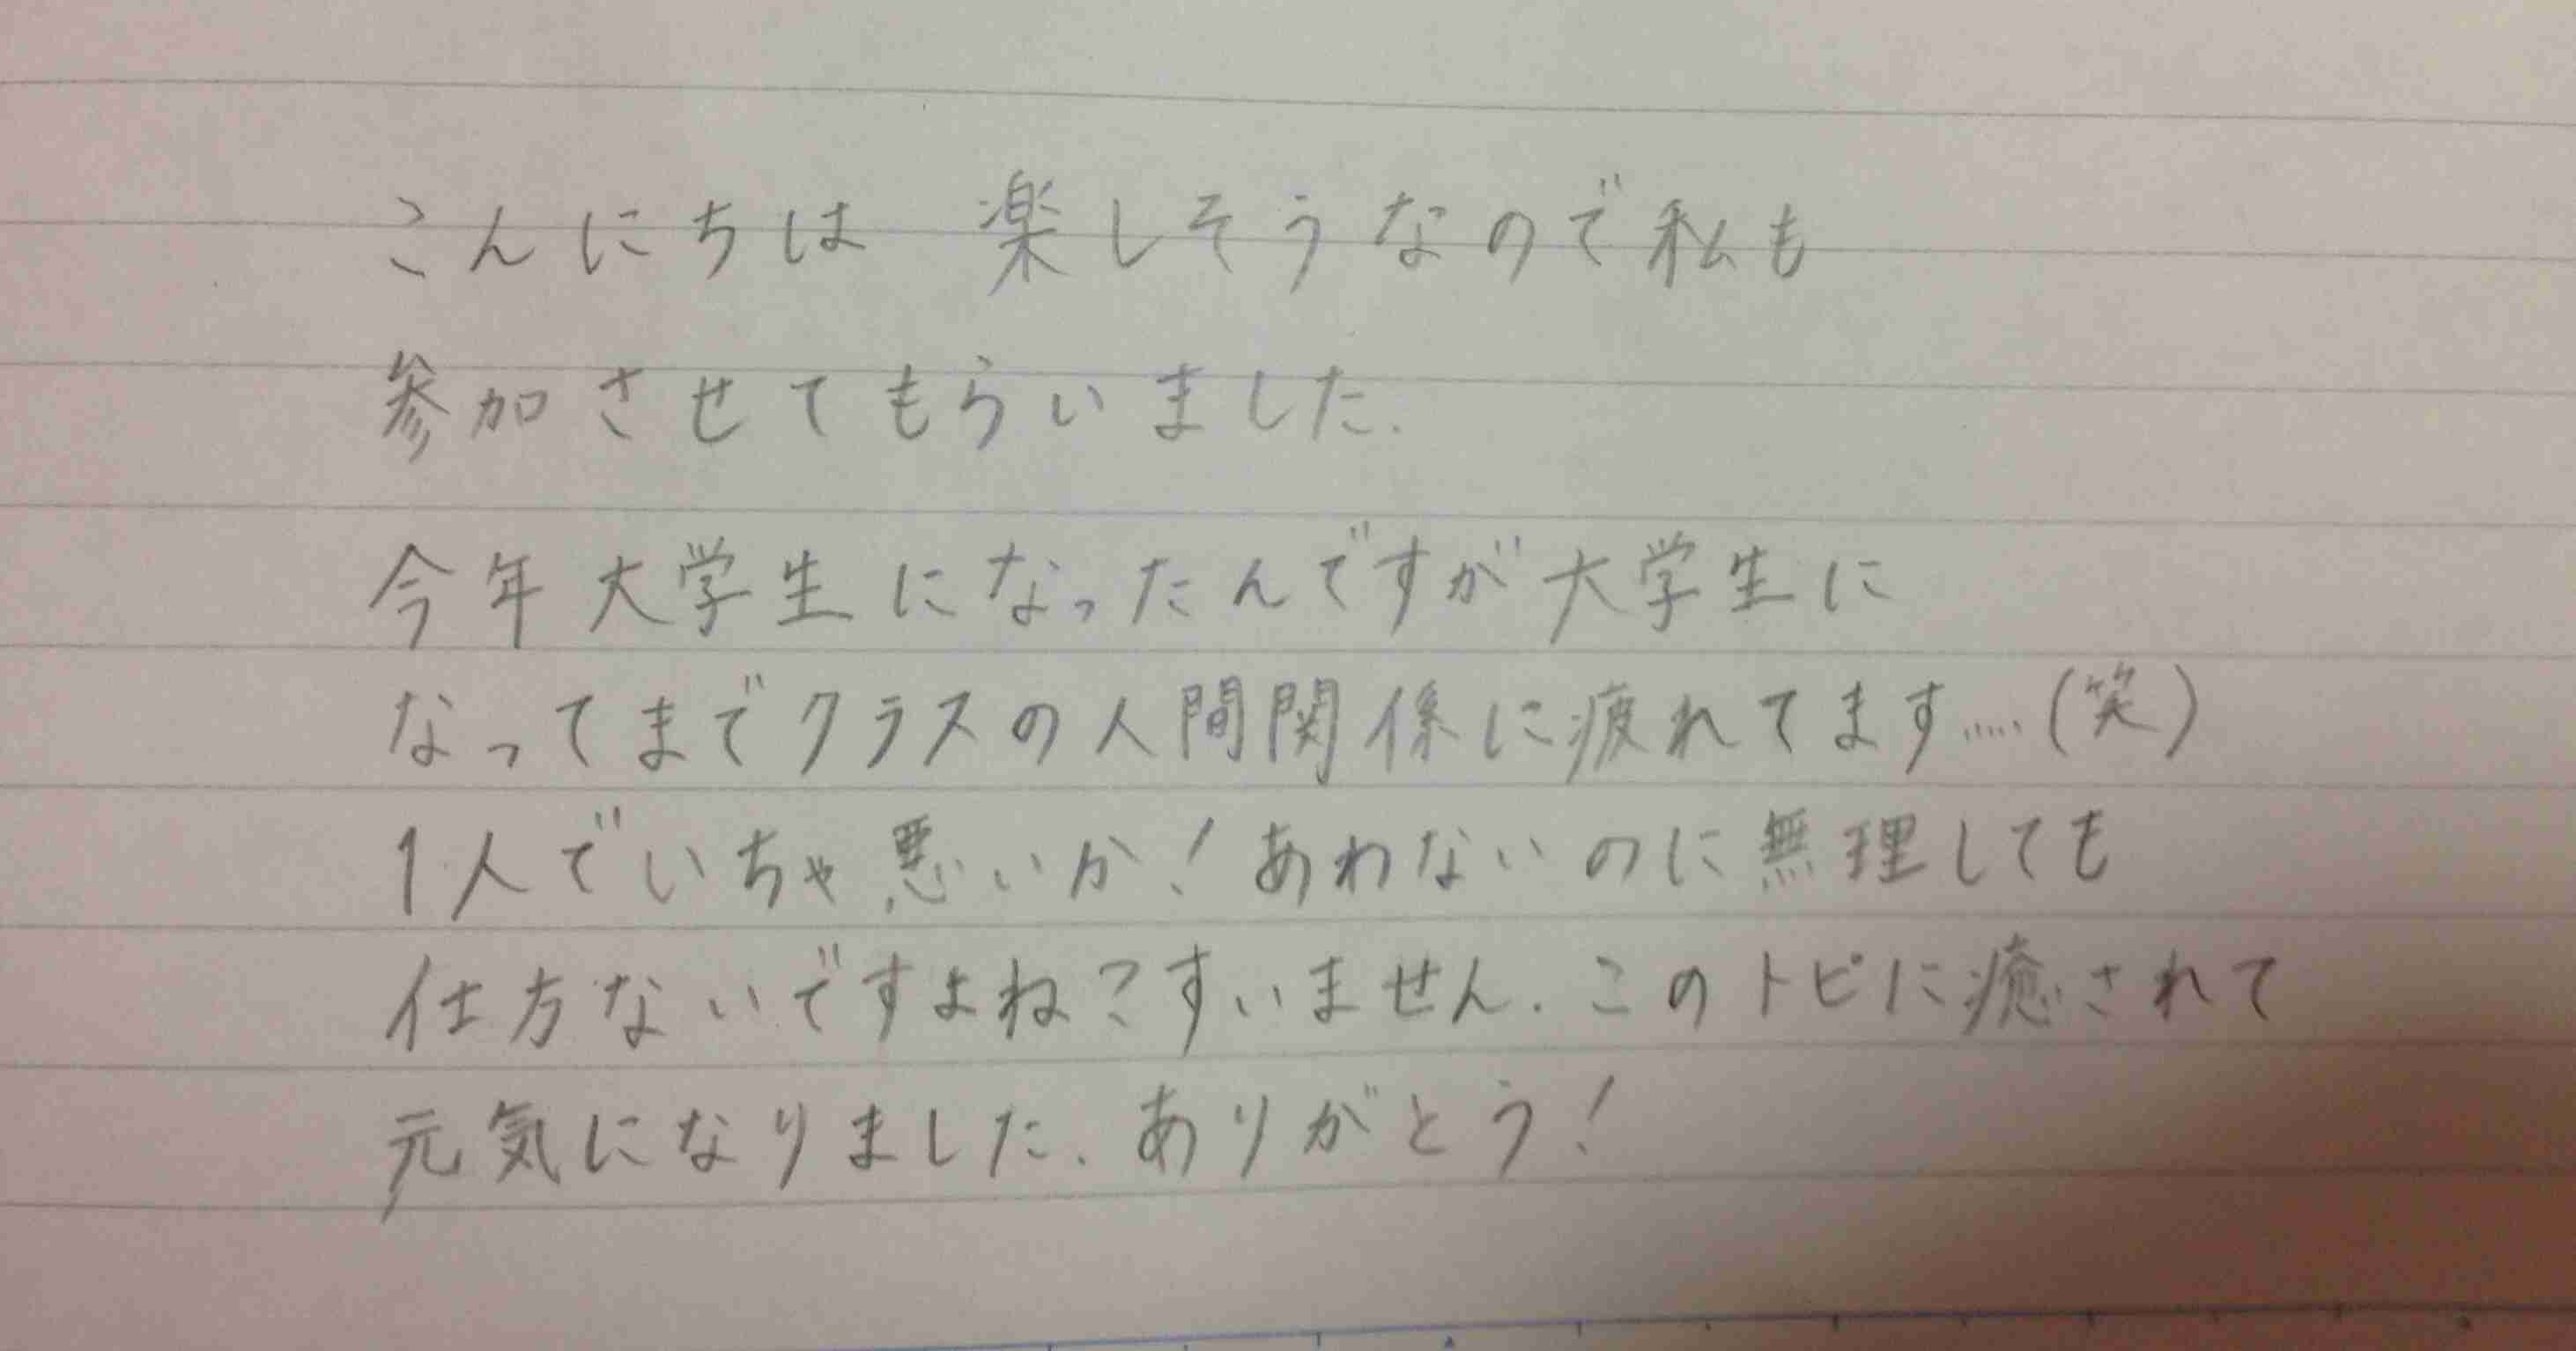 こんにちは 楽しそうなので私も
参加させてもらいました.
今年大学生になったんですが大学生に
なってまでクラスの人間関係に疲れてます.....(笑)
1人でいちゃ悪いか!あわないのに無理しても
仕方ないですよね?すいません.このトピに癒されて
元気になりました.ありがとう!